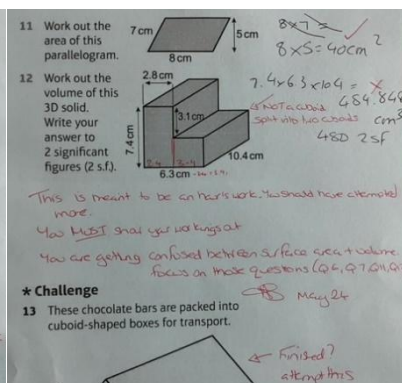 11 Work out the area of this parallelogram.
7 cm
5 cm
8 cm
8×7 =
8×5 = 40cm²
12 Work out the volume of this 3D solid. Write your answer to 2 significant figures (2 s.f.).
2.8 cm
3.1 cm
7.4 cm
10.4 cm
6.3 cm
7.4×6.3×10.4 =
484.848
cm³
480 2sf
NOT a cuboid
split into two cuboids
This is meant to be an hour's work. You should have attempted
more.
You MUST show your workings out
You are getting confused between surface area + volume
focus on those questions (Q6, Q7, Q11, Q
May 24
* Challenge
13 These chocolate bars are packed into
cuboid-shaped boxes for transport.
Finished?
attempt this